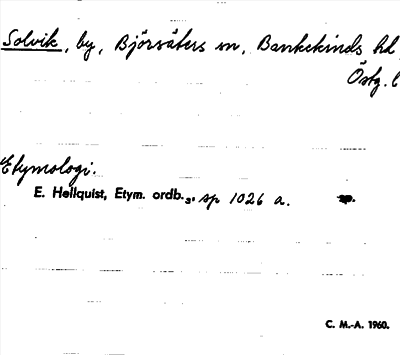 Solvik, by, Björsäters sn, Bankekinds hd,
Östg. l
Etymologi.
E. Hellquist, Etym. ordb.₃, sp 1026 a.
C. M.-A. 1960.